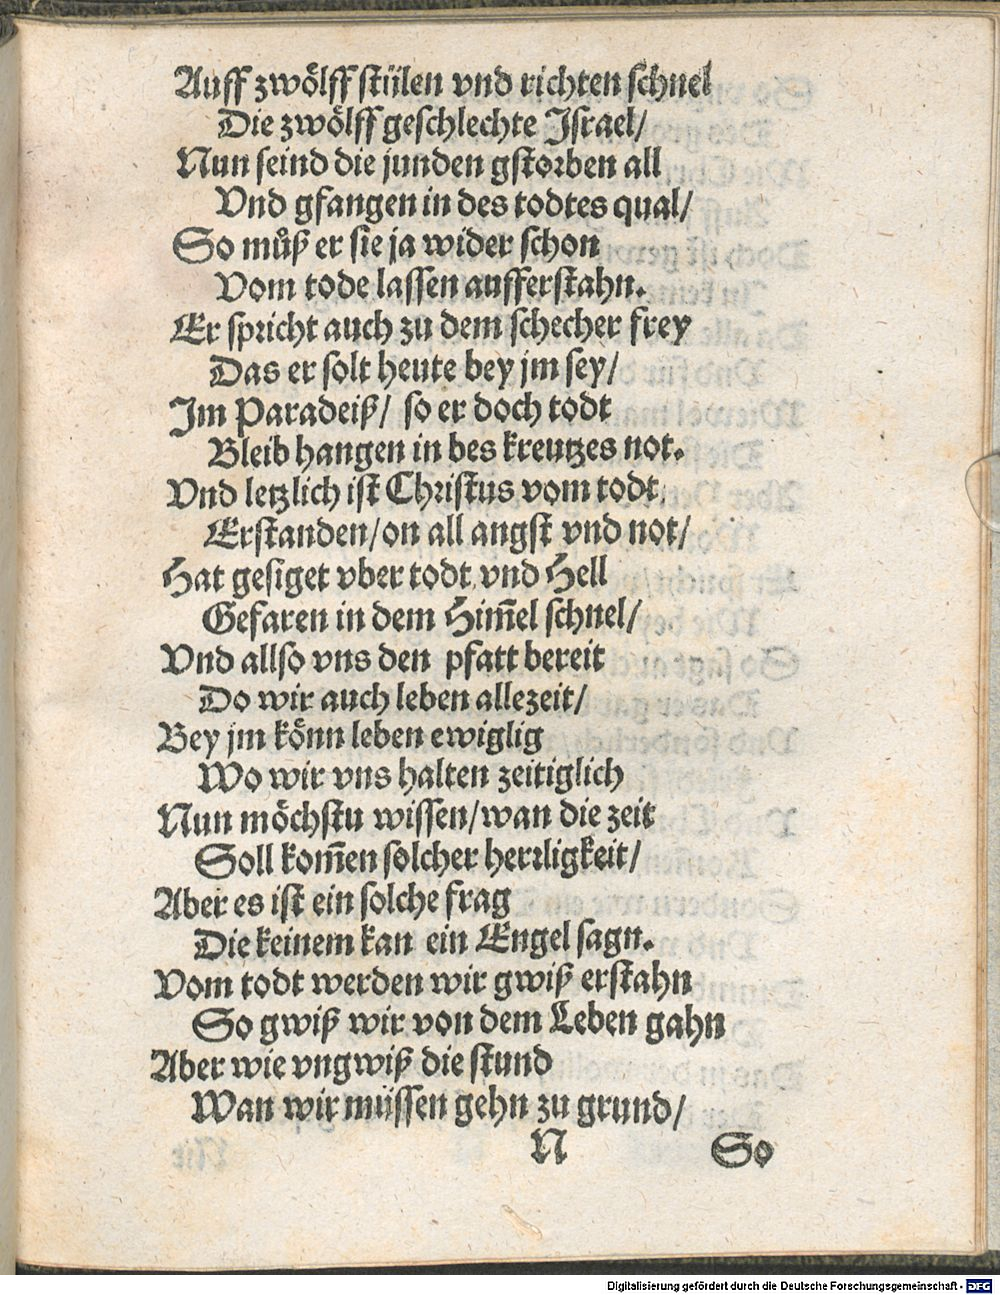 Auff zwölff stülen vnd richten schnel
Die zwölff geschlechte Israel/
Nun seind die junden gstorben all
Vnd gfangen in des todtes qual/
So můß er sie ja wider schon
Vom tode lassen aufferstahn.
Er spricht auch zu dem schecher frey
Das er solt heute bey jm sey/
Im Paradeiß/ so er doch todt
Bleib hangen in bes kreutzes not.
Vnd letzlich ist Christus vom todt
Erstanden/on all angst vnd not/
Hat gesiget vber todt vnd Hell
Gefaren in dem Him̃el schnel/
Vnd allso vns den pfatt bereit
Do wir auch leben allezeit/
Bey jm könn leben ewiglig
Wo wir vns halten zeitiglich
Nun möchstu wissen/wan die zeit
Soll kom̃en solcher herrligkeit/
Aber es ist ein solche frag
Die keinem kan ein Engel sagn.
Vom todt werden wir gwiß erstahn
So gwiß wir von dem Leben gahn
Aber wie vngwiß die stund
Wan wir müssen gehn zu grund/
N So
Digitalisierung gefördert durch die Deutsche Forschungsgemeinschaft - DFG